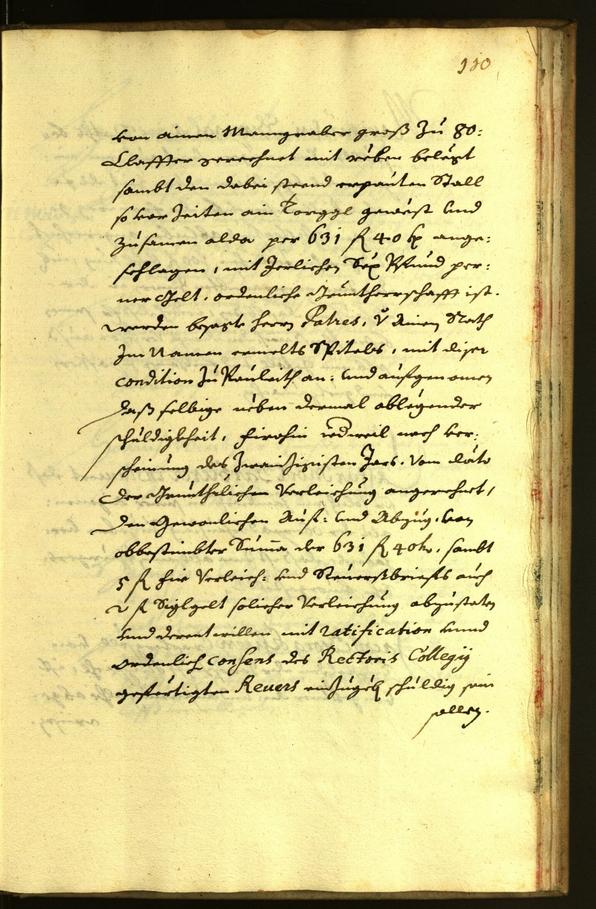 110
von ainen Manngraber groß zu 80:
Claffter gerechnet mit reben belegt
sambt den dabei steend erpauten Stall
so vor Zeiten ain Torggl gewest und
zusamen alda per 631 fl 40 kr ange:
schlagen, mit Jerlichen Sex Pfund per:
ner gelt, ordenliche Grundtherrschafft ist.
werden besagte herrn Patres, Ainen
Im Namen ermelts Spitales, mit diser
condition zu Pauleith an: und aufgenomen
daß selbige neben dermal obligender
schuldigkheit, firohin iedweil nach ver:
scheinung des Zwainzigisten Jars. Vom dato
der Verleichung angerechnet,
den Gewonlichen Auf: und Abzug, von
obbestimbter Suma der 631 fl 40 kr, sambt
5 fl für Verleich: und Steuersbriefs auch
2 fl Siglgelt solicher Verleichung abzustaten
und derentwillen mit ratification unnd
ordenlich consens des Rectoris Collegij
gefertigten Revers schuldig sein
sollen.